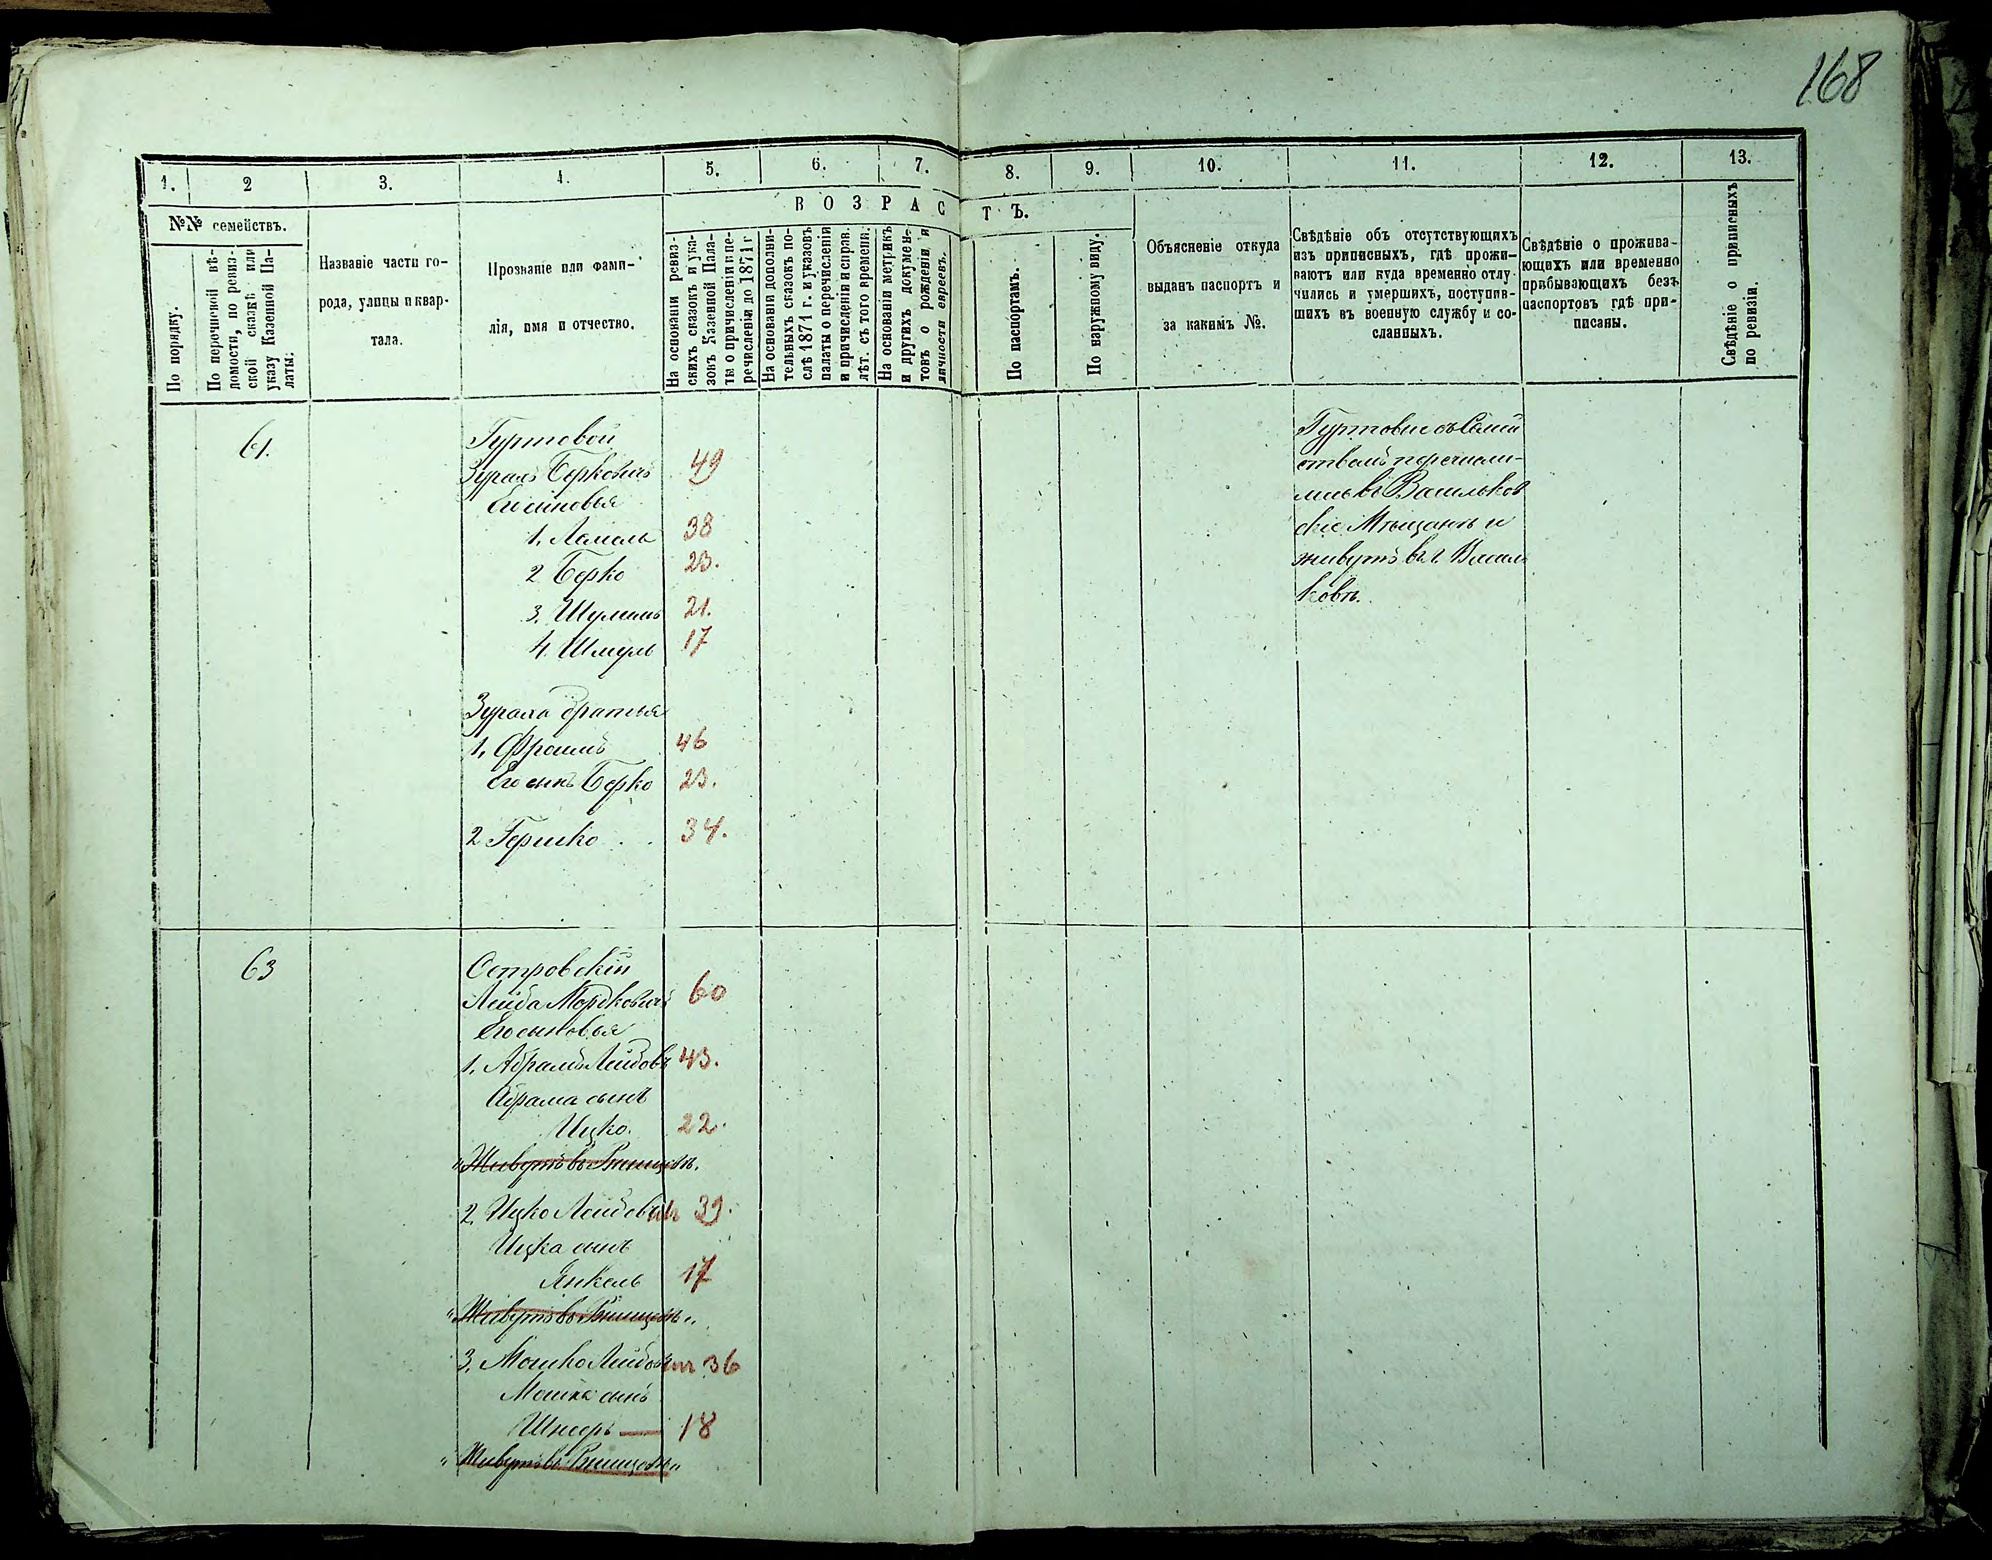 168
1.
2
3.
4.
5.
6.
7.
8.
9.
10.
11.
12.
13.
№№ семействъ.
ВОЗРАСТЪ.
По порядку.
По перечневой вѣ-
домости, по ревиз-
ской сказкѣ или
указу Казенной Па-
латы:
Названіе части го-
рода, улицы и квар-
тала.
Прозваніе или фами-
лія, имя и отчество.
На основаніи ревиз-
скихъ сказокъ и ука-
зовъ Казенной Пала-
ты о причисленіи и пе-
речисленіи до 1871 г
На основаніи дополни-
тельныхъ сказокъ по-
слѣ 1871 г. и указовъ
палаты о перечисленіи
и причисленіи и справ.
лѣт. съ того времени.
На основаніи метрикъ
и другихъ докумен-
товъ о рожденіи и
личности евреевъ.
По паспортамъ.
По наружному виду.
Объясненіе откуда
выданъ паспортъ и
за какимъ №.
Свѣдѣніе объ отсутствующихъ
изъ приписныхъ, гдѣ прожи-
ваютъ или куда временно отлу-
чились и умершихъ, поступив-
шихъ въ военную службу и со-
сланныхъ.
Свѣдѣніе о прожива-
ющихъ или временно
прибывающихъ безъ
паспортовъ гдѣ при-
писаны.
Свѣдѣніе о приписныхъ
по ревизіи.
61.
Гуртовой
Зурахъ Берковичъ 49
Его сыновья
1. 38
2 Берко 23.
3. Шулимъ 21.
4. Шмуль 17
Зураха братья
1, Фроимъ 46
Его сынъ Берко 23.
2 Гершко 34.
Гуртовые съ Семей
ствомъ перечисли-
лись въ Васильков
скіе Мѣщане и
живутъ въ г. Василь
ковѣ.
63
Островскій
Лейба Мордковичъ 60
Его сыновья
1. Абрамъ Лейбовъ 43.
Абрама сынъ
Ицко. 22.
"Живутъ въ Ржищевѣ.
2. Ицко Лейбовъ 39.
Ицка сынъ
Янкель 17
"Живутъ въ Ржищевѣ"
3. Мошко Лейбовъ 36
Мошка сынъ
Шнееръ 18
"Живутъ въ Ржищевѣ"